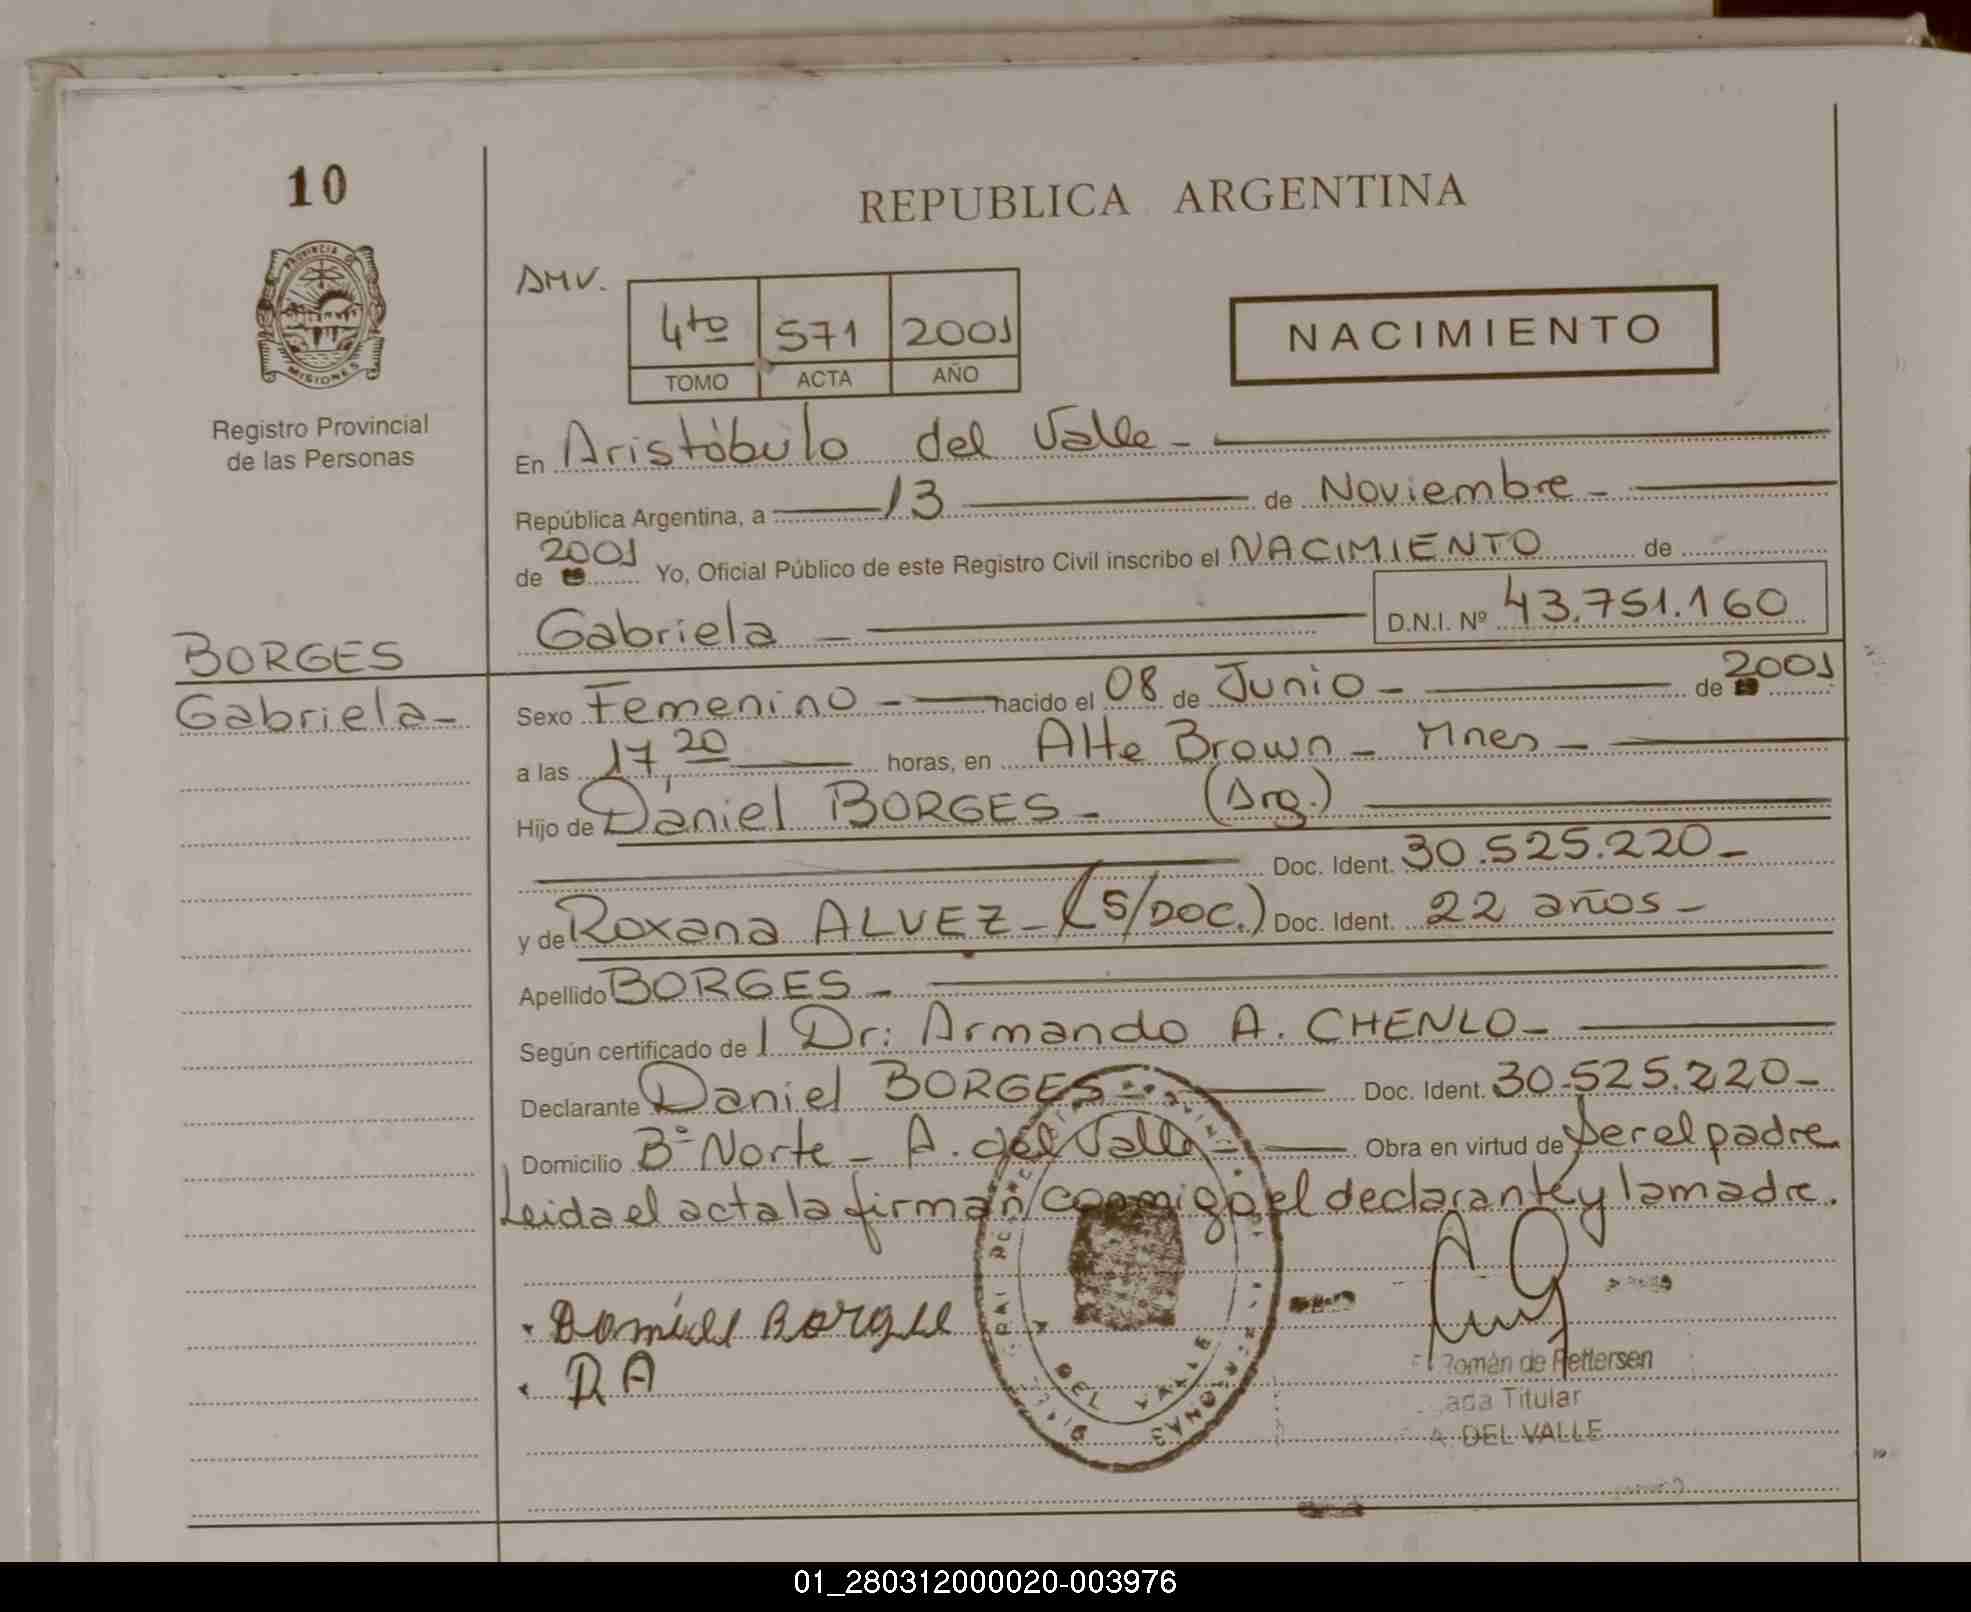 10
REPUBLICA ARGENTINA
PROVINCIA DE
MISIONES
Registro Provincial
de las Personas
AMV.
4to 571 2001
TOMO ACTA AÑO
NACIMIENTO
En Aristóbulo del Valle -
República Argentina, a 13 de Noviembre -
de 2001 Yo, Oficial Público de este Registro Civil inscribo el NACIMIENTO de
Gabriela - D.N.I. Nº 43.751.160
BORGES
Gabriela -
Sexo Femenino - nacido el 08 de Junio - de 2001
a las 17,20 horas, en Alte Brown - Mnes -
Hijo de Daniel BORGES - (Arg.)
Doc. Ident. 30.525.220 -
y de Roxana ALVEZ - (S/DOC.) Doc. Ident. 22 años -
Apellido BORGES -
Según certificado de Dr: Armando A. CHENLO -
Declarante Daniel BORGES - Doc. Ident. 30.525.220 -
Domicilio Bº Norte - A. del Valle - Obra en virtud de ser el padre
Leida el acta la firman conmigo el declarante y la madre.
R A
DEL VALLE
Román de Pettersen
Titular
A. DEL VALLE
01_280312000020-003976